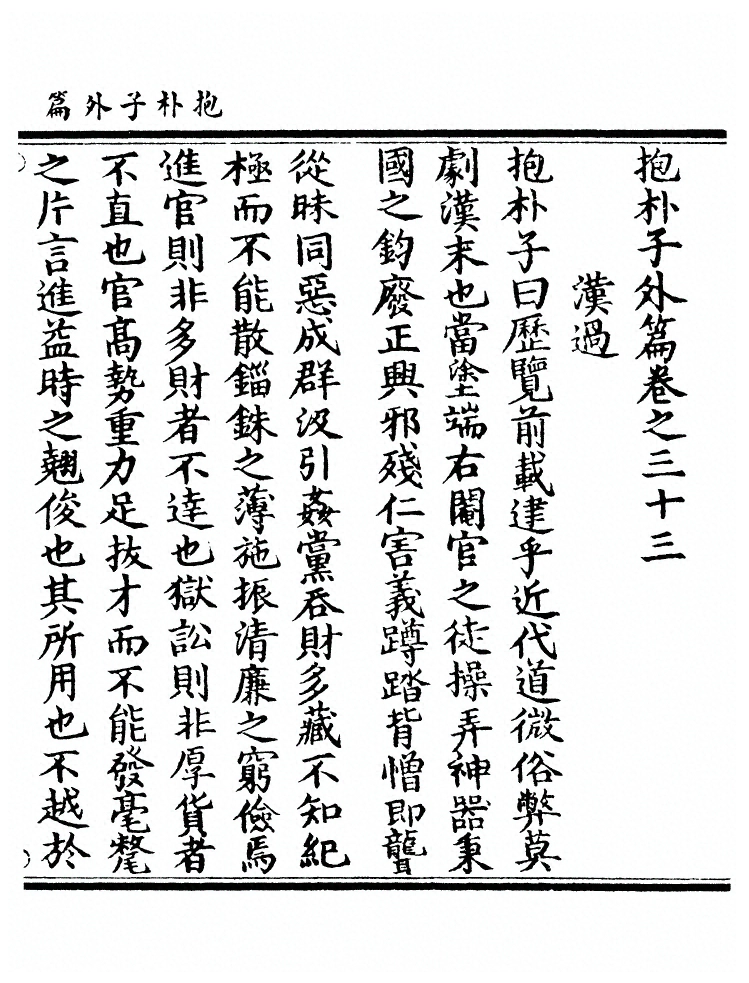 抱朴子外篇
抱朴子外篇卷之三十三
漢過
抱朴子曰歷覽前載逮乎近代道微俗弊莫
劇漢末也當塗端右閹官之徒操弄神器秉
國之鈞廢正興邪殘仁害義蹲踏背憎即聾
從昧同惡成群汲引姦黨吞財多藏不知紀
極而不能散錙銖之薄施振清廉之窮儉焉
進官則非多財者不達也獄訟則非厚貨者
不直也官高勢重力足拔才而不能發毫氂
之片言進益時之翹俊也其所用也不越於